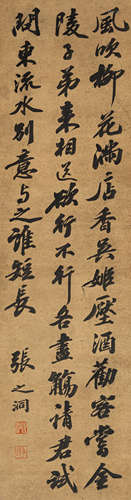 風吹柳花滿店香吳姬壓酒勸客嘗金
陵子弟來相送欲行不行各盡觴請君試
問東流水別意与之誰短長
張之洞